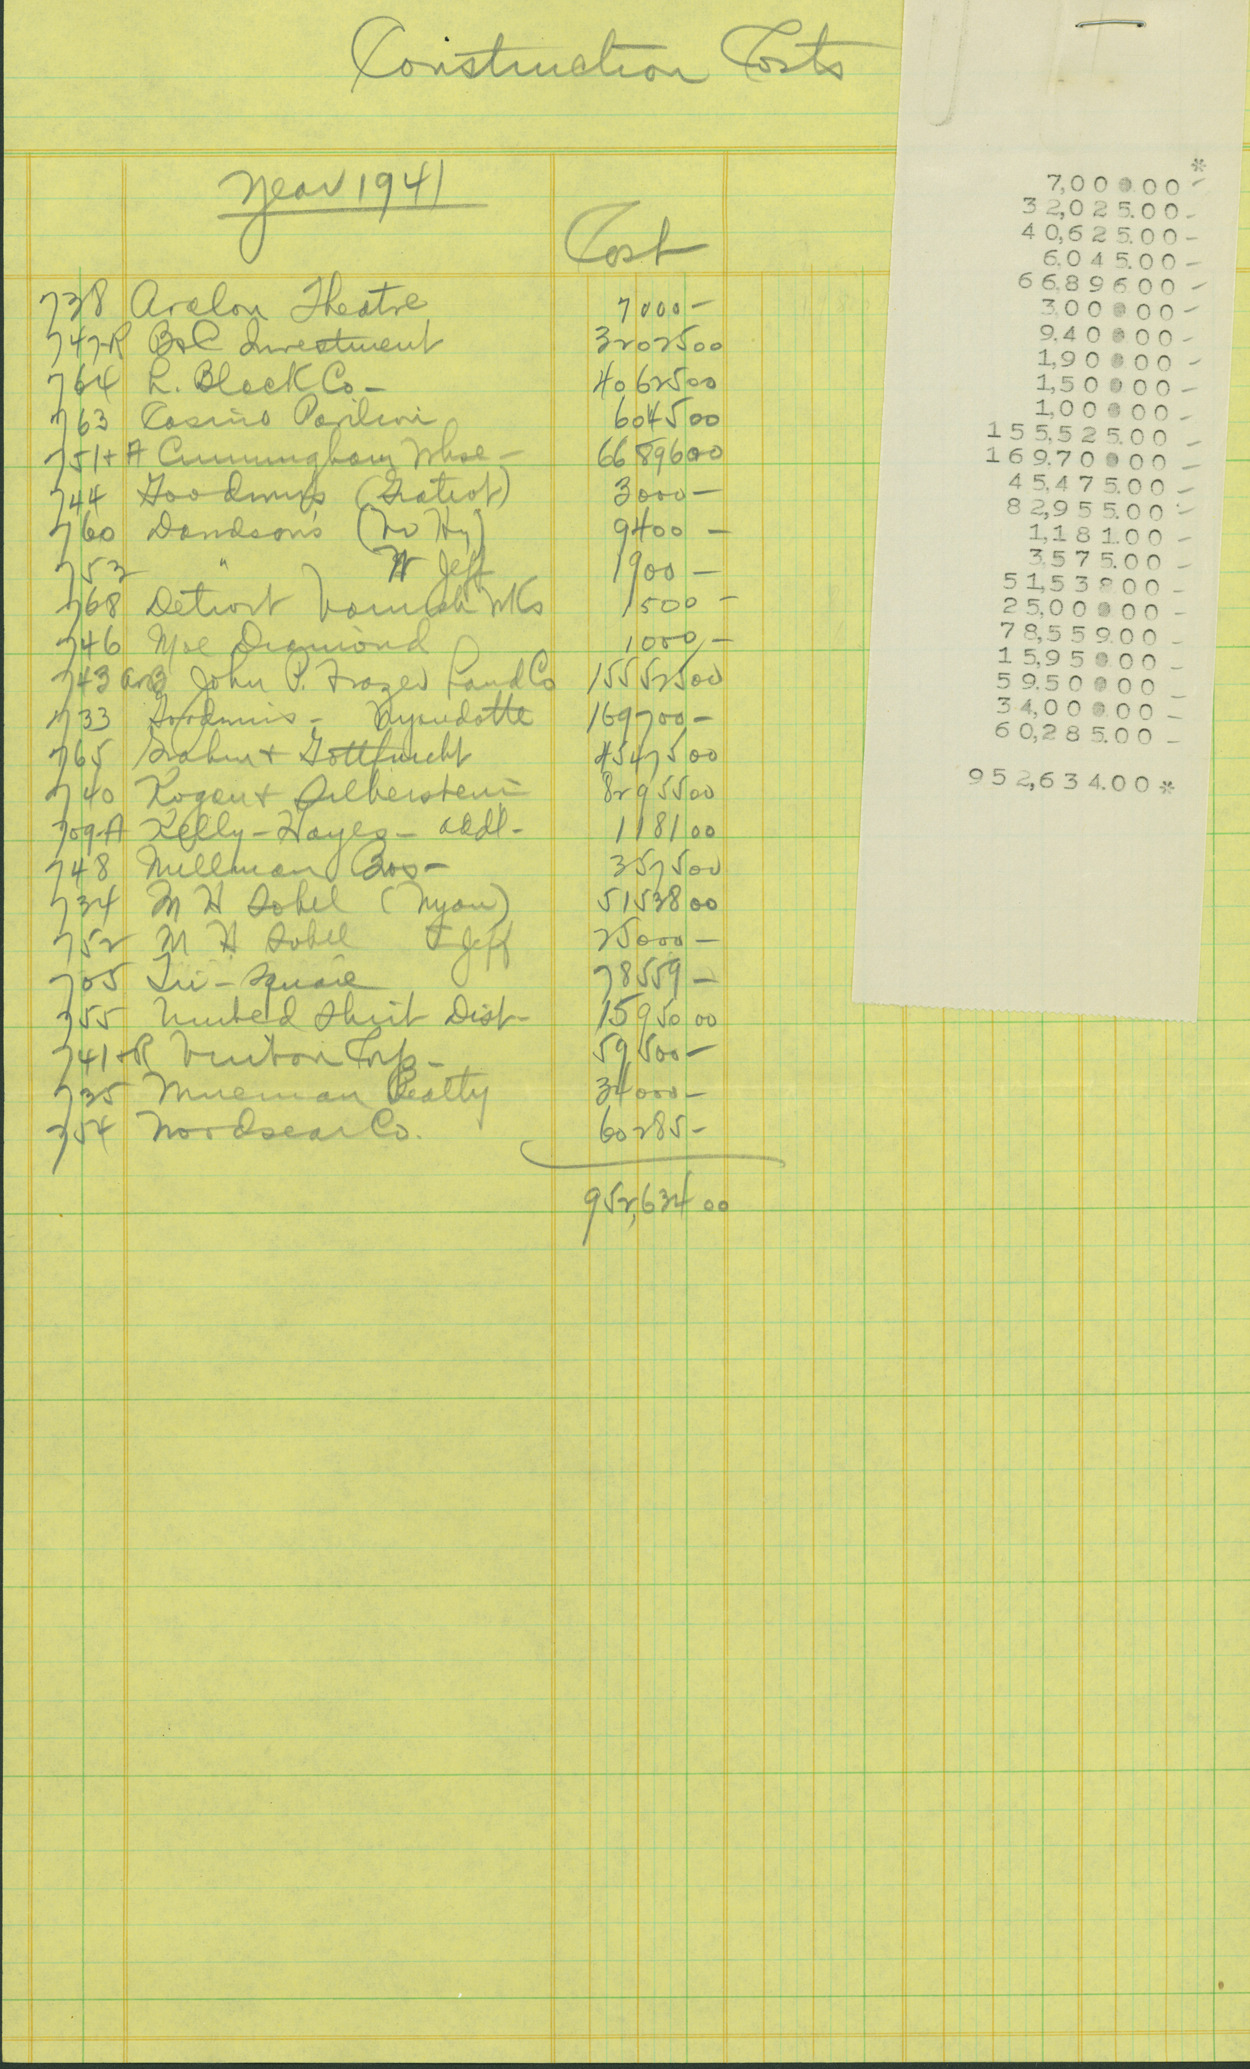 Construction Costs
Year 1941
Cost
738 Avalon Theatre 7000 -
747-R B&C Investment 32025 00
764 L. Black Co - 40625 00
763 Casino Pavilion 6045 00
751+A Cunningham Whse - 66896 00
744 Goodwins (Gratiot) 3000 -
760 Davidson's 9400 -
753 " W Jeff 1900 -
768 Detroit Varnish Wks 1500 -
746 Moe Diamond 1000 -
743 A+B John P. Frazer Land Co 155525 00
733 Goodwins - Wyandotte 169700 -
765 Grahm + Gottfrecht 45475 00
740 Kogan + Silberstein 82955 00
709-A Kelly - Hayes - addl - 1181 00
748 Millman Bros - 3575 00
734 M H Sobel (Wyan) 51538 00
752 M H Sobel E Jeff 25000 -
705 Tri - Square 78559 -
755 United Shirt Dist - 15950 00
741+R Corp - 59500 -
735 Realty 34000 -
754 Co. 60285 -
952,634 00
*
7,000.00 -
32,025.00 -
40,625.00 -
6,045.00 -
66,896.00 -
3,000.00 -
9,400.00 -
1,900.00 -
1,500.00 -
1,000.00 -
155,525.00 -
169,700.00 -
45,475.00 -
82,955.00 -
1,181.00 -
3,575.00 -
51,538.00 -
25,000.00 -
78,559.00 -
15,950.00 -
59,500.00 -
34,000.00 -
60,285.00 -
952,634.00 *